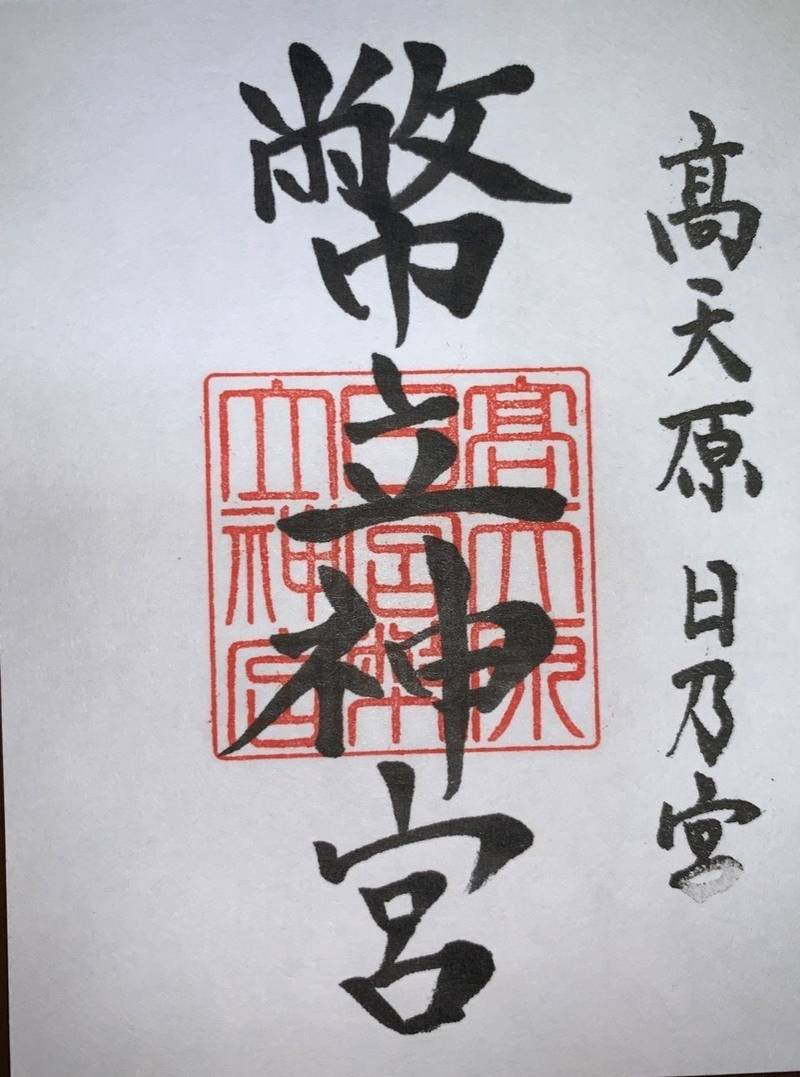 髙天原 日乃宮
幣立神宮
高天原
日宮幣
立神宮